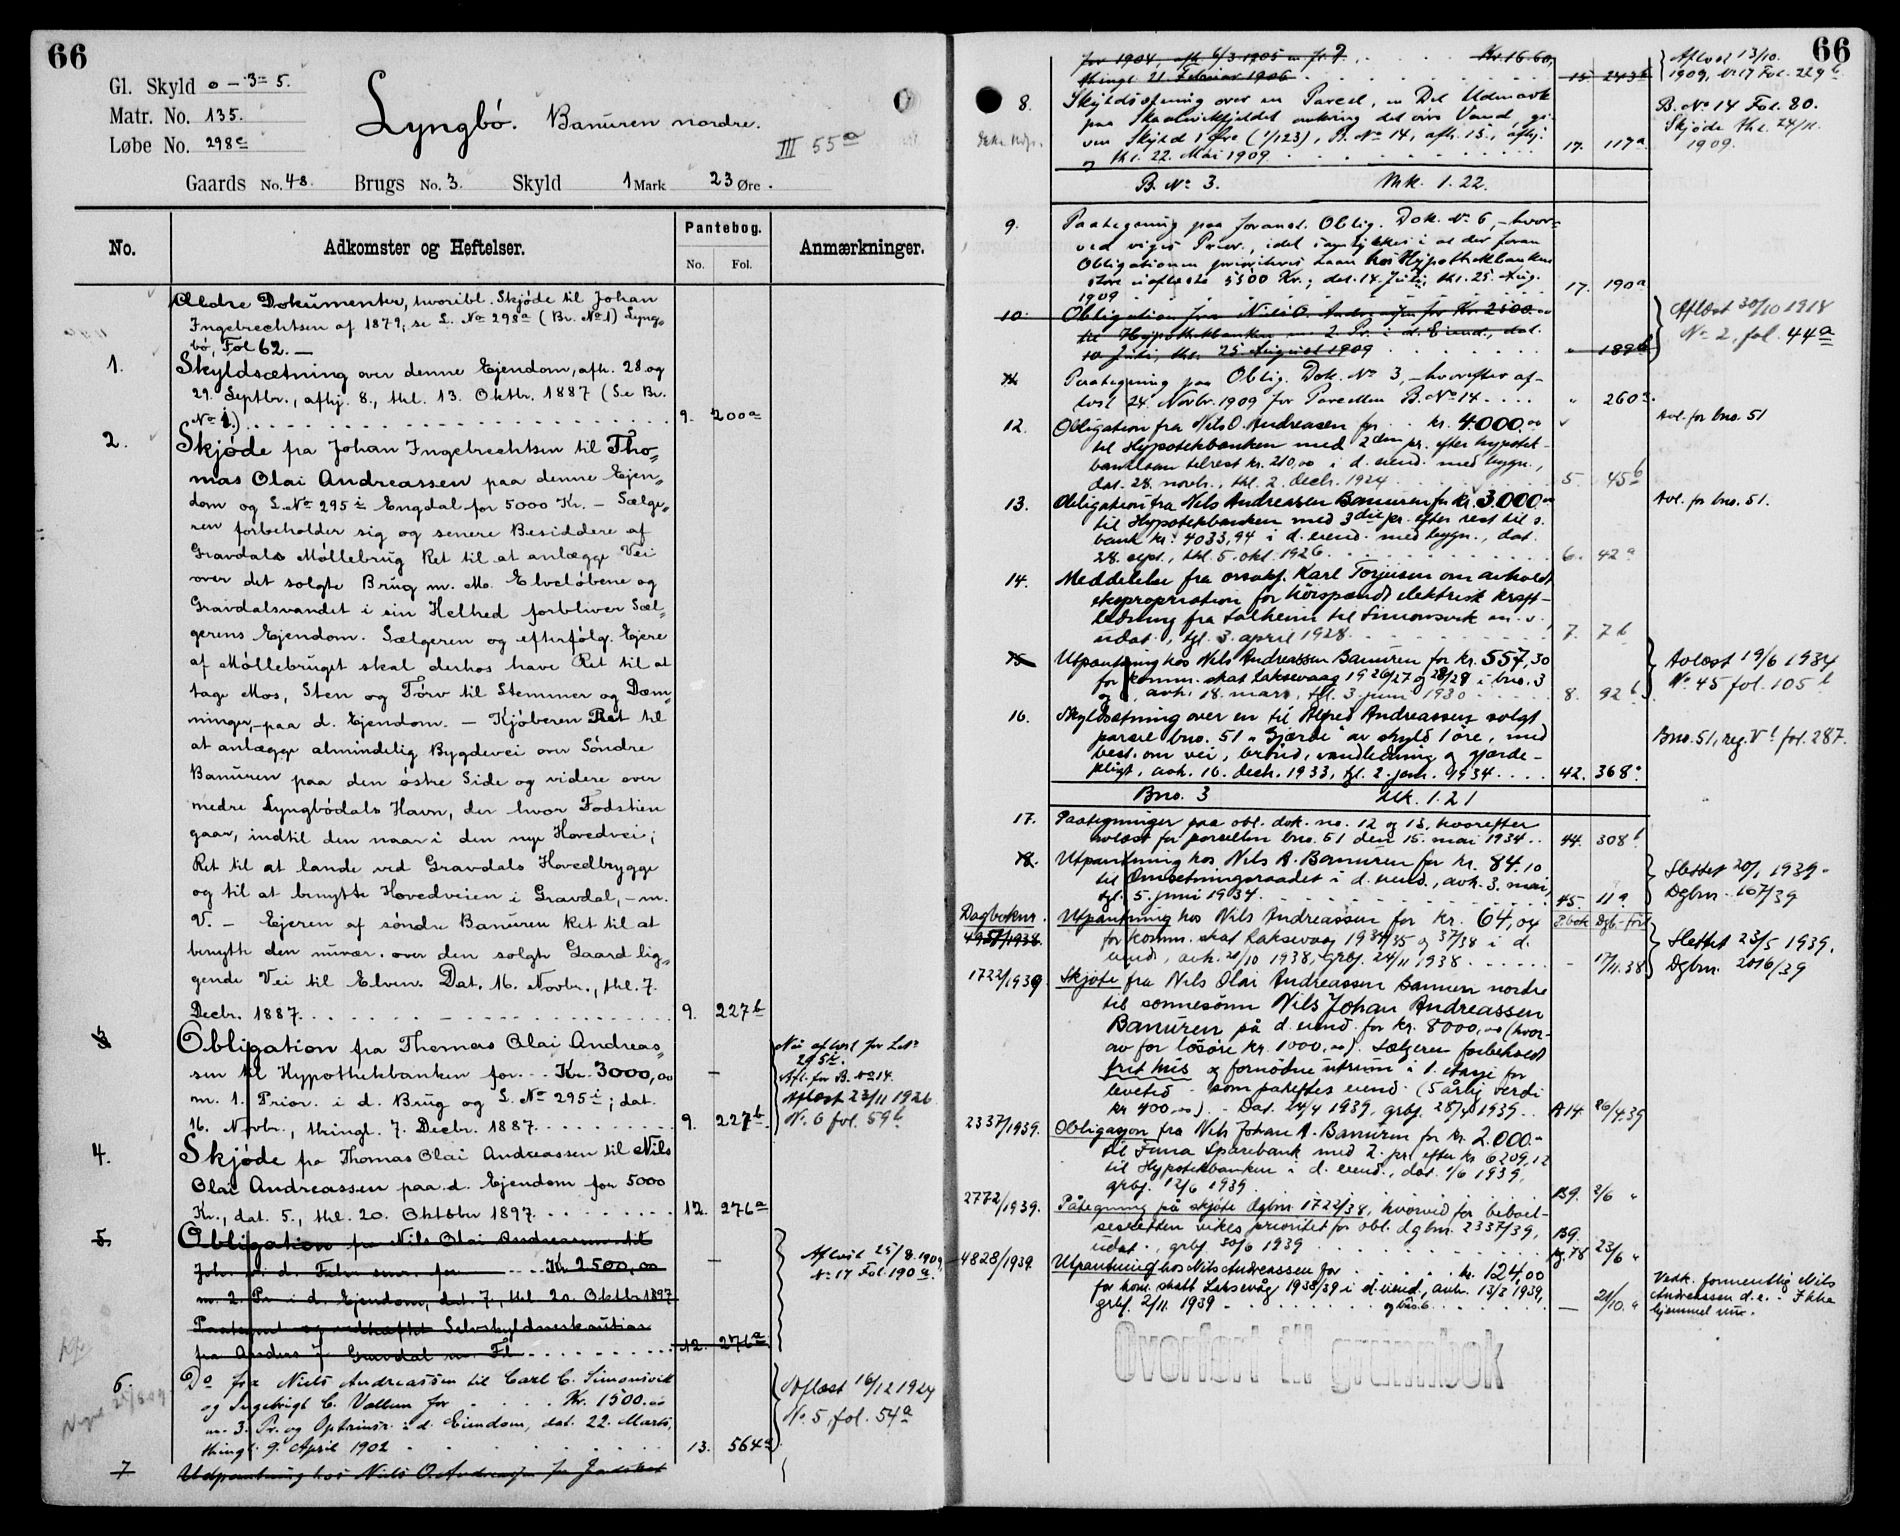 66
Gl. Skyld 0 – 3 – 5.
Matr. No. 135.
Løbe No. 298c
Lyngbö. Banuren nordre.
III 55a
Gaards No. 48. Brugs No. 3. Skyld 1 Mark 23 Øre.
No. Adkomster og Heftelser. Pantebog. No. Fol. Anmærkninger.
Ældre Dokumenter, hvoribl. Skjöde til Johan
Ingebrechtsen af 1879, se L. No 298a (Br. No 1) Lyng-
bö, Fol 62. —
1. Skyldsætning over denne Ejendom, afh. 28. og
29. Septbr., afhj. 8., thl. 13. Oktbr. 1887 (Se Br.
No 1.) 9. 200a
2. Skjöde fra Johan Ingebrechtsen til Tho-
mas Olai Andreassen paa denne Ejen-
dom og L.No 295i Engdal for 5000 Kr. – Sælge-
ren forbeholder sig og senere Besiddere af
Gravdals Möllebrug Ret til at anlægge Vei
over det solgte Brug m. M. Elvelöbene og
Gravdalsvandet i sin Helhed forbliver Sæl-
gerens Ejendom. Sælgeren og efterfölg. Ejere
af Möllebruget skal derhos have Ret til at
tage Mos, Sten og Törv til Stemmer og Dæm-
ninger, paa d. Ejendom. – Kjöberen Ret til
at anlægge almindelig Bygdevei over Söndre
Banuren paa den östre Side og videre over
nedre Lyngbödals Havn, der hvor Fodstien
gaar, indtil den naar i den nye Hovedvei;
Ret til at lande ved Gravdals Hovedbrygge
og til at benytte Hovedveien i Gravdal, – m.
V. – Ejeren af söndre Banuren Ret til at
benytte den nuvær. over den solgte Gaard lig-
gende Vei til Elven. Dat. 16. Novbr., thl. 7.
Decbr. 1887. 9. 227b
3 Obligation fra Thomas Olai Andreas-
sen til Hypothekbanken for Kr. 3000,00
m. 1. Prior. i d. Brug og L. No 295i; dat.
16. Novbr., thingl. 7. Decbr. 1887. 9. 227b
295i.
Afl. for B. No 14.
Aflæst 23/11 1926
No. 6 fol. 59b
4. Skjöde fra Thomas Olai Andreassen til Nils
Olai Andreassen paa d. Ejendom for 5000
Kr., dat. 5., thl. 20. Oktober 1897. 12. 276a
5. Obligation fra Nils Olai Andreassen til
Joh. d. Fahr for Kr. 2500,00
m. 2. Pr. i d. Ejendom, dat. 7., thl. 20. Oktbr 1897
Paategnet og vedhæftet Selvskyldnerkaution
fra Anders J. Gravdal m. Fl. 12. 276a
Aflöst 25/8. 1909,
No 17 Fol. 190a.
6. Do fra Niels Andreassen til Carl C. Simonsvik
og Ingebrigt C. Vallum for Kr. 1500.00
m. 3. Pr. og Optrinsr. i d. Eiendom, dat. 22. Marts,
thingl. 9. April 1902 13. 564a
Aflæst 16/12 1924
No. 5, fol. 54a
7 Udpantning hos Niels O. Andreassen for Jordskat
66
for 1904, afh. 6/3 1905 Kr. 16.60,
thingl. 21. Februar 1906 15 243b
Aflöst 13/10.
1909, No 17 Fol. 229b
8. Skyldsætning over en Parcel, en Del Udmark
paa Skaalvikfjeldet omkring det övre Vand, gi-
ven Skyld 1 Öre (1/123), B. No 14, afh. 15., afhj.
og thl. 22. Mai 1909 17. 117a
B. No 14 Fol. 80.
Skjöde thl. 24/11.
1909.
B. No 3. Mk. 1.22.
9. Paategning paa foranst. Oblig. Dok. No 6, – hvor-
ved viges Prior., idet samtykkes i at der foran
Obligationen prioriteres Laan hos Hypothekbanken
store uaflöste 5500 Kr.; dat. 14. Juli, thl. 25. Aug.
1909 17. 190a
10. Obligation fra Nils O. Andreassen for Kr. 2500.00
til Hypothekbanken m 2 Pr. i d. Eiend., dat.
10 Juli, thl. 25. August 1909 " 189b
Aflöst 30/10 1918
No. 2, fol. 44a
11. Paategning paa Oblig. Dok. No 3, – hvorefter af-
löst 24. Novbr. 1909 for Parcellen B. No 14 " 260a
12. Obligation fra Nils O. Andreasen for kr. 4000,00
til Hypotekbanken med 2den pr. efter hypotek-
banklaan tilrest kr. 210,00 i d. eiend. med bygn.,
dat. 28. novb., thl. 2. decb. 1924 5. 45b
Avl. for bno. 51
13. Obligation fra Nils Andreassen Banuren for kr. 3.000.00
til Hypotekbanken med 3die pr. efter rest til s.
bank kr. 4033,94 i d. eiend. med bygn., dat.
28. sept., thl. 5. okt. 1926. 6. 42a
Avl. for bno. 51.
14. Meddelelse fra orsakf. Karl Torjusen om avholdt
ekspropriation for höispændt elektrisk kraft-
ledning fra Solheim til Simonsvik m. v.
udat., tgl. 3. april 1928. 7. 7b
15 Utpantning hos Nils Andreassen Banuren for kr. 557,30
for komm. skat Laksevaag 1926/27 og 28/29 i bno. 3
og , avh. 18. mars, tgl. 3. juni 1930 8. 92b
Avlöst 19/6 1934
No. 45 fol. 105b
16. Skyldsætning over en til Alfred Andreassen solgt
parsel bno. 51 "Gjærde" av skyld 1 öre, med
best. om vei, brönd, vandledning og gjærde-
pligt, avh. 16. decb. 1933, tgl. 2. jan. 1934 42. 368a
Bno. 51, reg. VI fol. 287.
Bno. 3 Mk. 1.21
17. Paategninger paa obl. dok. no. 12 og 13, hvorefter
avlöst for parsellen bno. 51 den 15. mai 1934 44. 308b
18. Utpantning hos Nils A. Banuren for kr. 84,10
til Omsetningsraadet i d. eiend., avh. 3. mai,
tgl. 5. juni 1934. 45. 11a
Slettet 20/1 1939
Dgbnr. 167/39
Dagboknr. P.bok Dgb.-förl
4957/1938. Utpantning hos Nils Andreassen for kr. 64,04
for komm. skat Laksevaag 1934/35 og 37/38 i d.
eiend., avh. 21/10 1938, grbf. 24/11 1938 – 17/11.38
Slettet 23/5 1939.
Dgbnr. 2016/39
1722/1939 Skjöte fra Nils Olai Andreassen Banuren nordre
til sønnesønn Nils Johan Andreassen
Banuren på d. eiend. for kr. 8000,00 (hvor-
av for lösöre kr. 1000,00). Selgeren forbeholdt
frit hus og fornødne uthrum i 1. etasje for
levetid som påheftes eiend. (5 årlig verdi
kr 400,00). Dat. 24/4 1939, grbf. 28/4 1939 A14. 26/4.39
2337/1939. Obligasjon fra Nils Johan A. Banuren for kr. 2.000.–
til Fana Sparebank med 2. pr. efter kr 6209,12
til Hypotekbanken i d. eiend., dat. 1/6 1939,
grbf. 12/6 1939 B9. 2/6 "
2772/1939. Påtegning på skjöte dgbnr. 1722/38, hvorved for beboel-
sesretten vikes prioritet for obl. dgbnr. 2337/39,
udat., grbf. 30/6 1939 B9. 23/6 "
4828/1939. Utpantning hos Nils Andreassen for kr. 124,00
for kom. skatt Laksevåg 1938/39 i d. eiend., avh. 13/3 1939,
grbf. 2/11 1939 — 21/10. "
Vedk. formentlig Nils
Andreassen d.e. – Ikke
hjemmel
Overført til grunnbok